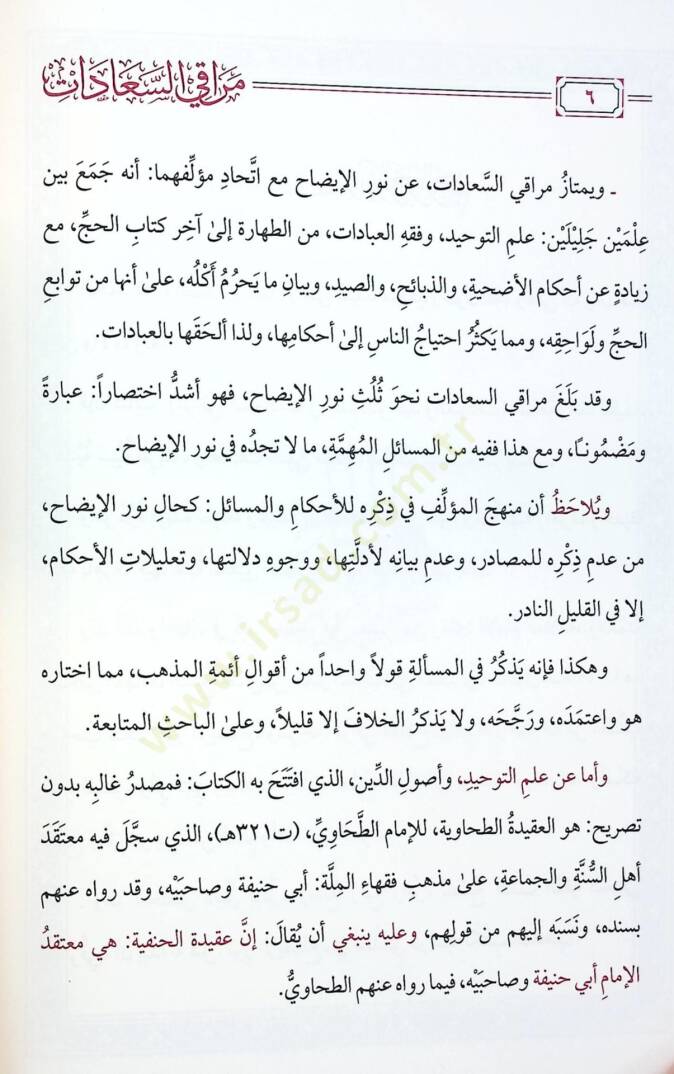 مَرَاقِي السَّعَادَاتِ
٦
ـ ويمتازُ مراقي السَّعادات، عن نورِ الإيضاح مع اتَّحادِ مؤلِّفهما: أنه جَمَعَ بين
عِلْمَيْن جَلِيْلَيْن: علمِ التوحيد، وفقهِ العبادات، من الطهارة إلىٰ آخِر كتابِ الحجِّ، مع
زيادةٍ عن أحكام الأضحيةِ، والذبائحِ، والصيدِ، وبيانِ ما يَحرُمُ أكْلُه، علىٰ أنها من توابعِ
الحجِّ ولَوَاحِقِه، ومما يَكثُرُ احتياجُ الناسِ إلىٰ أحكامِها، ولذا ألحَقَها بالعبادات.
وقد بَلَغَ مراقي السعادات نحوَ ثُلُثِ نورِ الإيضاح، فهو أشدُّ اختصاراً: عبارةً
ومَضْمُوناً، ومع هذا ففيه من المسائلِ المُهِمَّةِ، ما لا تجدُه في نور الإيضاح.
ويُلاحَظُ أن منهجَ المؤلِّفِ في ذِكْرِه للأحكامِ والمسائل: كحالِ نور الإيضاح،
من عدمِ ذِكْرِه للمصادر، وعدمِ بيانِه لأدلَّتِها، ووجوهِ دلالتها، وتعليلاتِ الأحكام،
إلا في القليلِ النادر.
وهكذا فإنه يَذكُرُ في المسألةِ قولاً واحداً من أقوالِ أئمةِ المذهب، مما اختاره
هو واعتمَدَه، ورَجَّحَه، ولا يَذكرُ الخلافَ إلا قليلاً، وعلىٰ الباحثِ المتابعة.
وأما عن علمِ التوحيدِ، وأصولِ الدِّين، الذي افتَتَحَ به الكتابَ: فمصدرُ غالبِه بدون
تصريح: هو العقيدةُ الطحاوية، للإمام الطَّحَاوِيِّ، (ت٣٢١هـ)، الذي سجَّلَ فيه معتقَدَ
أهلِ السُّنَّةِ والجماعةِ، علىٰ مذهبِ فقهاءِ المِلَّة: أبي حنيفة وصاحبَيْه، وقد رواه عنهم
بسنده، ونَسَبَه إليهم من قولِهم، وعليه ينبغي أن يُقالَ: إنَّ عقيدةَ الحنفية: هي معتقدُ
الإمامِ أبي حنيفة وصاحبَيْه، فيما رواه عنهم الطحاويُّ.
www.irsad.com.tr